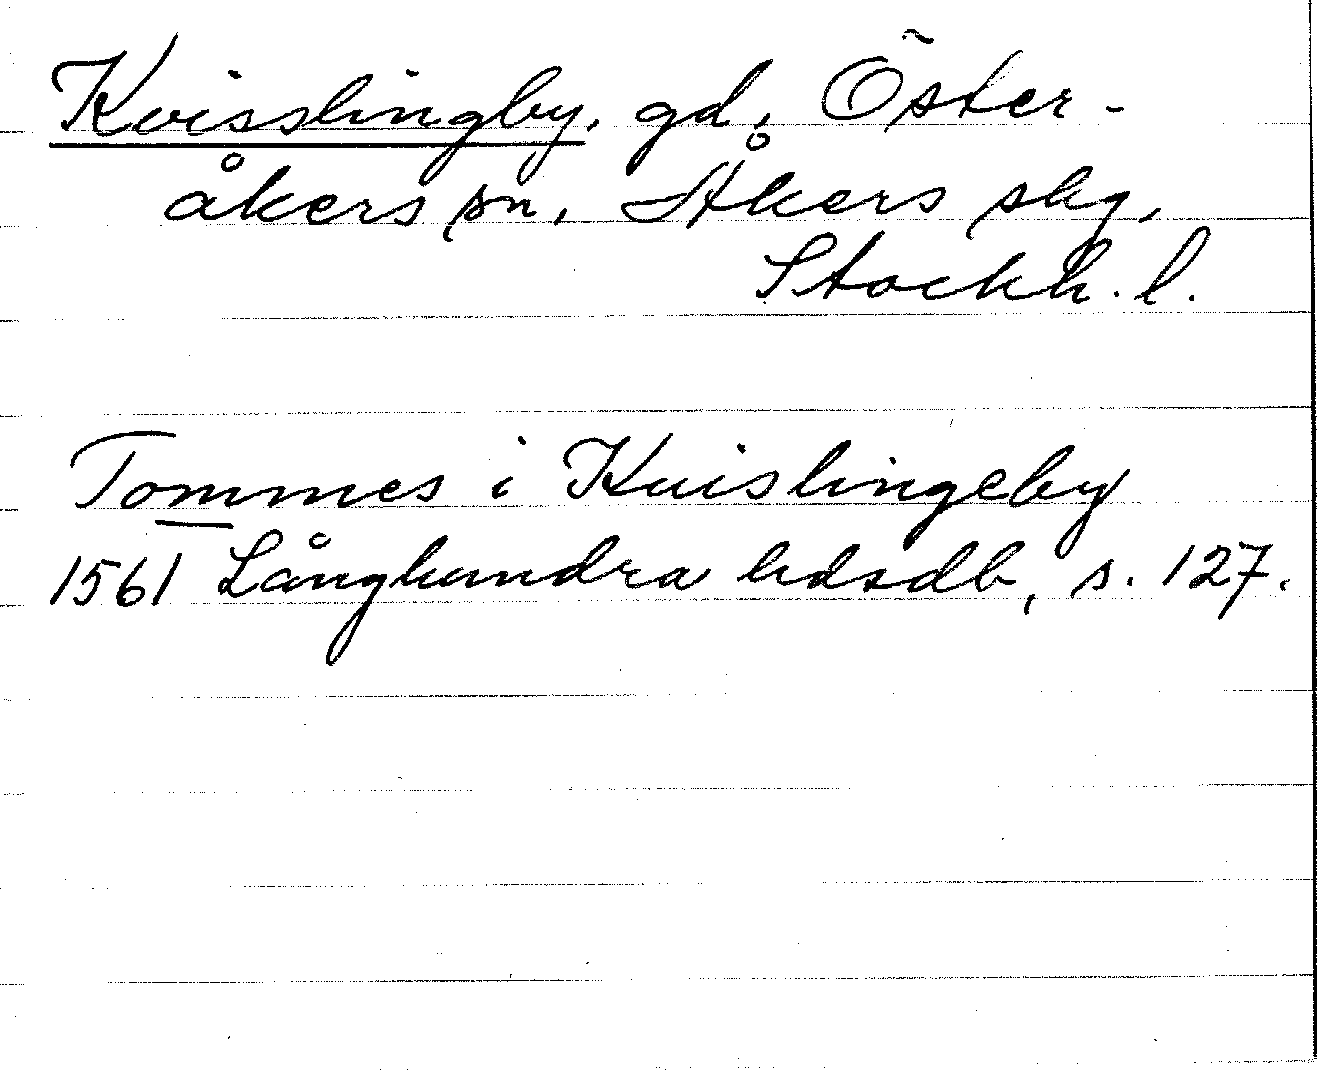 Kvisslingby, gd, Öster-
åkers sn, Åkers skg,
Stockh. l.
Tommes i Kuislingeby
1561 Långhundra hdsdb, s. 127.